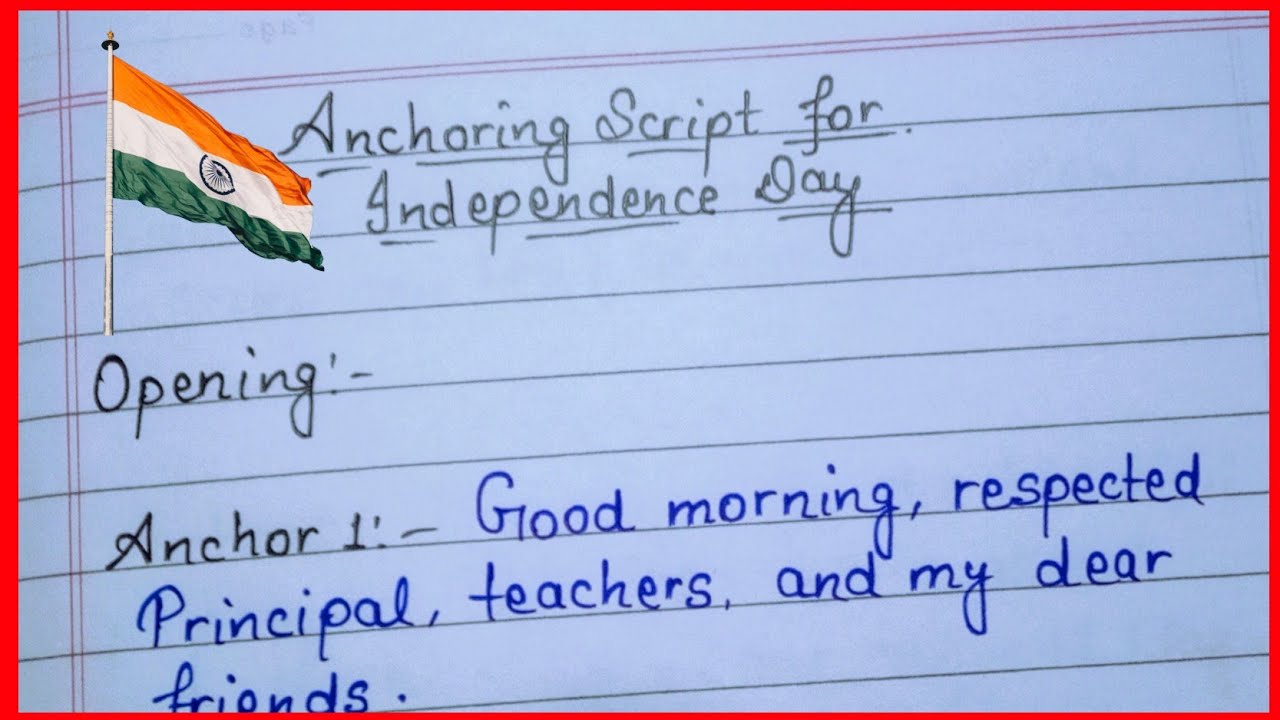 Anchoring Script for
Independence Day
Opening:-
Anchor 1:- Good morning, respected
Principal, teachers, and my dear
friends.